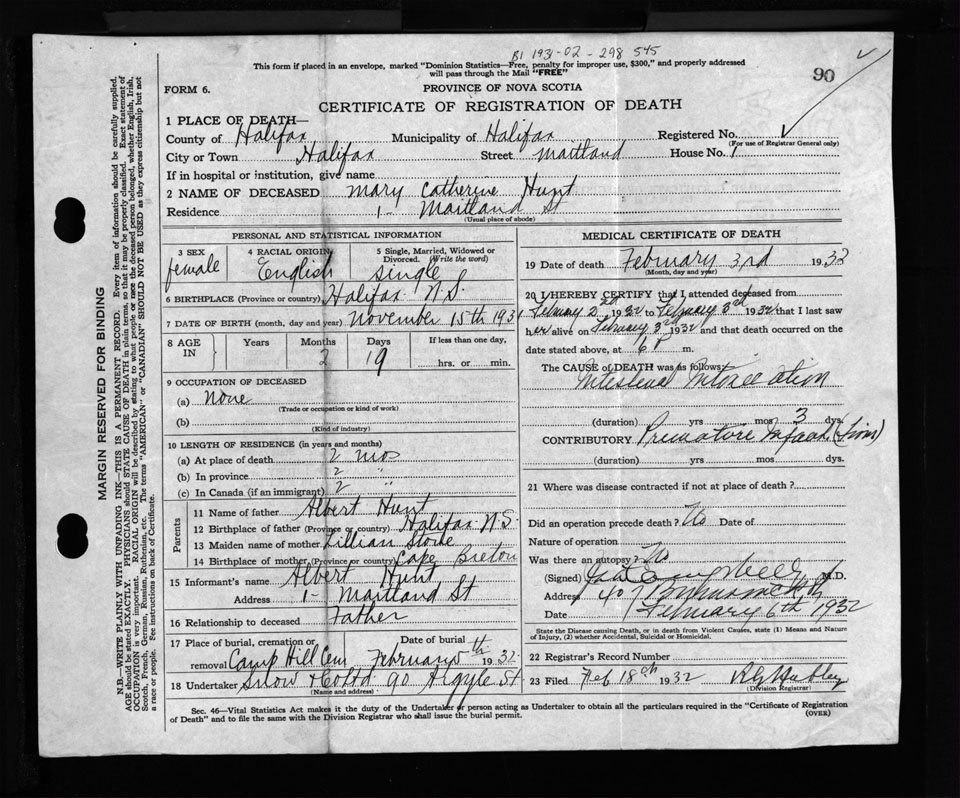 B1 1931-02-298 545
90
This form if placed in an envelope, marked "Dominion Statistics—Free, penalty for improper use, $300," and properly addressed
will pass through the Mail "FREE"
FORM 6.
PROVINCE OF NOVA SCOTIA
CERTIFICATE OF REGISTRATION OF DEATH
1 PLACE OF DEATH—
County of Halifax Municipality of Halifax Registered No.
(For use of Registrar General only)
City or Town Halifax Street Maitland House No. 1
If in hospital or institution, give name
2 NAME OF DECEASED Mary Catherine Hunt
Residence 1- Maitland St
(Usual place of abode)
PERSONAL AND STATISTICAL INFORMATION
3 SEX female
4 RACIAL ORIGIN English
5 Single, Married, Widowed or Divorced. (Write the word) single
6 BIRTHPLACE (Province or country) Halifax N.S.
7 DATE OF BIRTH (month, day and year) November 15th 1931
8 AGE IN Years Months 2 Days 19 If less than one day, hrs. or min.
9 OCCUPATION OF DECEASED
(a) None
(Trade or occupation or kind of work)
(b)
(Kind of industry)
10 LENGTH OF RESIDENCE (in years and months)
(a) At place of death 2 mos
(b) In province 2 "
(c) In Canada (if an immigrant) 2 "
Parents
11 Name of father Albert Hunt
12 Birthplace of father (Province or country) Halifax N.S.
13 Maiden name of mother Lillian Stone
14 Birthplace of mother (Province or country) Cape Breton
15 Informant's name Albert Hunt
Address 1- Maitland St
16 Relationship to deceased Father
17 Place of burial, cremation or removal Camp Hill Cem Date of burial February 5th 1932
18 Undertaker Snow & Co Ltd 90 Argyle St
(Name and address)
MEDICAL CERTIFICATE OF DEATH
19 Date of death February 3rd 1932
(Month, day and year)
20 I HEREBY CERTIFY that I attended deceased from
February 2nd 1932 to February 3rd 1932 that I last saw
her alive on February 3rd 1932 and that death occurred on the
date stated above, at 6 P m.
The CAUSE of DEATH was as follows:
Intestinal Intoxication
(duration) yrs mos 3 dys.
CONTRIBUTORY Premature Infant
(duration) yrs mos dys.
21 Where was disease contracted if not at place of death?
Did an operation precede death? No Date of
Nature of operation
Was there an autopsy? No
(Signed) Campbell M.D.
Address 407 Brunswick St
Date February 6th 1932
State the Disease Causing Death, or in death from Violent Causes, state (1) Means and Nature
of Injury, (2) whether Accidental, Suicidal or Homicidal.
22 Registrar's Record Number
23 Filed Feb 18th 1932
(Division Registrar)
Sec. 46—Vital Statistics Act makes it the duty of the Undertaker or person acting as Undertaker to obtain all the particulars required in the "Certificate of Registration
of Death" and to file the same with the Division Registrar who shall issue the burial permit.
(OVER)
MARGIN RESERVED FOR BINDING
N.B.—WRITE PLAINLY WITH UNFADING INK—THIS IS A PERMANENT RECORD. Every item of information should be carefully supplied.
AGE should be stated EXACTLY. PHYSICIANS should STATE CAUSE OF DEATH in plain terms, so that it may be properly classified. Exact statement of
OCCUPATION is very important. RACIAL ORIGIN will be described by stating to what people or race the deceased person belonged, whether English, Irish,
Scotch, French, German, Russian, Ruthenian, etc. The terms "AMERICAN" or "CANADIAN" SHOULD NOT BE USED as they express citizenship but not
a race or people. See instructions on back of Certificate.